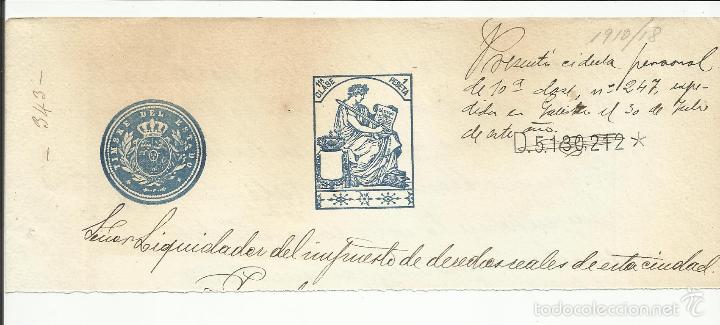 1910/18
Presentó cédula personal
de 10ª clase, nº 247, expe-
dida en el 30 de Julio
de este año.
- 343 -
TIMBRE DEL ESTADO
11ª CLASE
1 PESETA
D.5.180.212*
Señor Liquidador del impuesto de derechos reales de esta ciudad.
todocoleccion